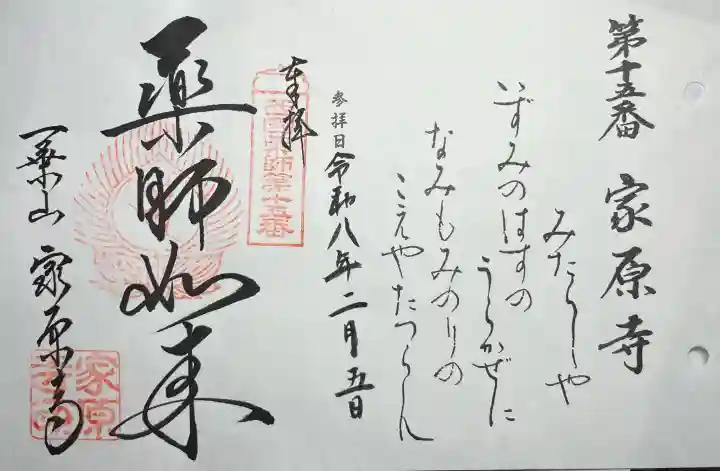 第十五番 家原寺
みたらしや
いずみのはすの
うらかぜに
なみもみのりの
こえやたつらん
参拝日令和八年二月五日
奉拝
西国薬師第十五番
薬師如来
一乗山 家原寺
家原寺